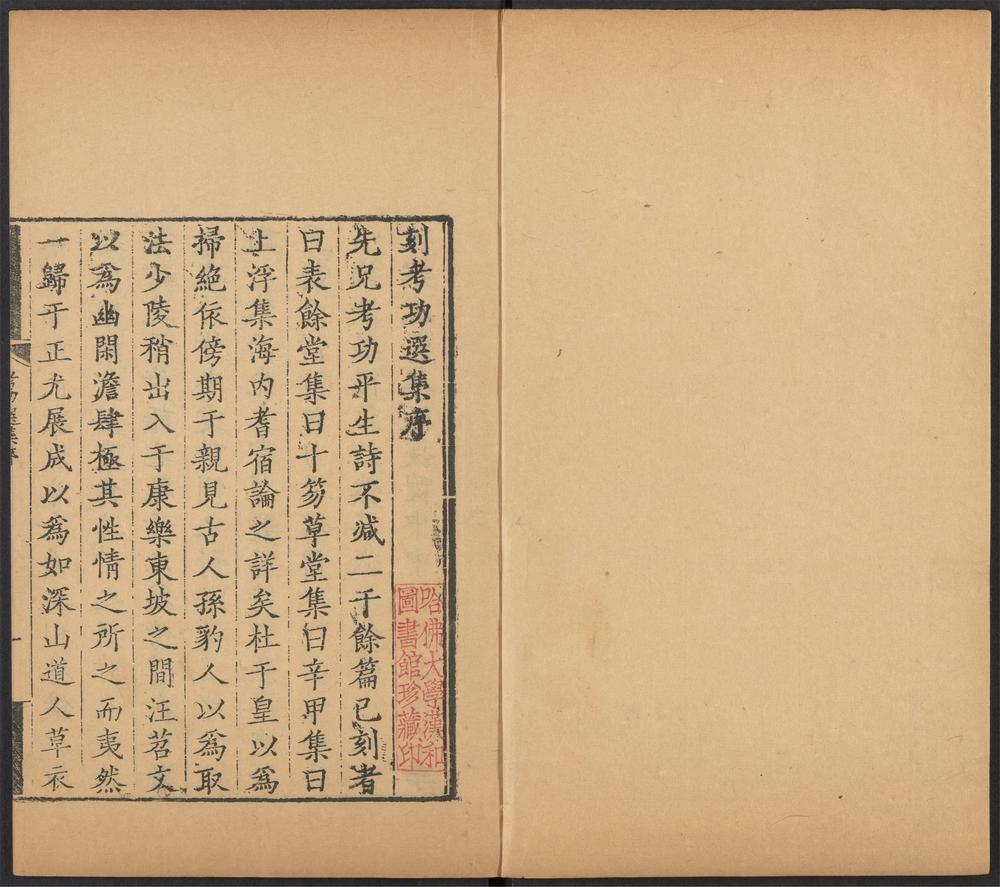 刻考功選集序
先兄考功平生詩不減二千餘篇已刻者
曰表餘堂集曰十笏草堂集曰辛甲集曰
上浮集海内耆宿論之詳矣杜于皇以爲
掃絶依傍期于親見古人孫豹人以爲取
法少陵稍出入于康樂東坡之間汪苕文
以爲幽閑澹肆極其性情之所之而夷然
一歸于正尤展成以爲如深山道人草衣
考功選集序
一
哈佛大學漢和
圖書館珍藏印